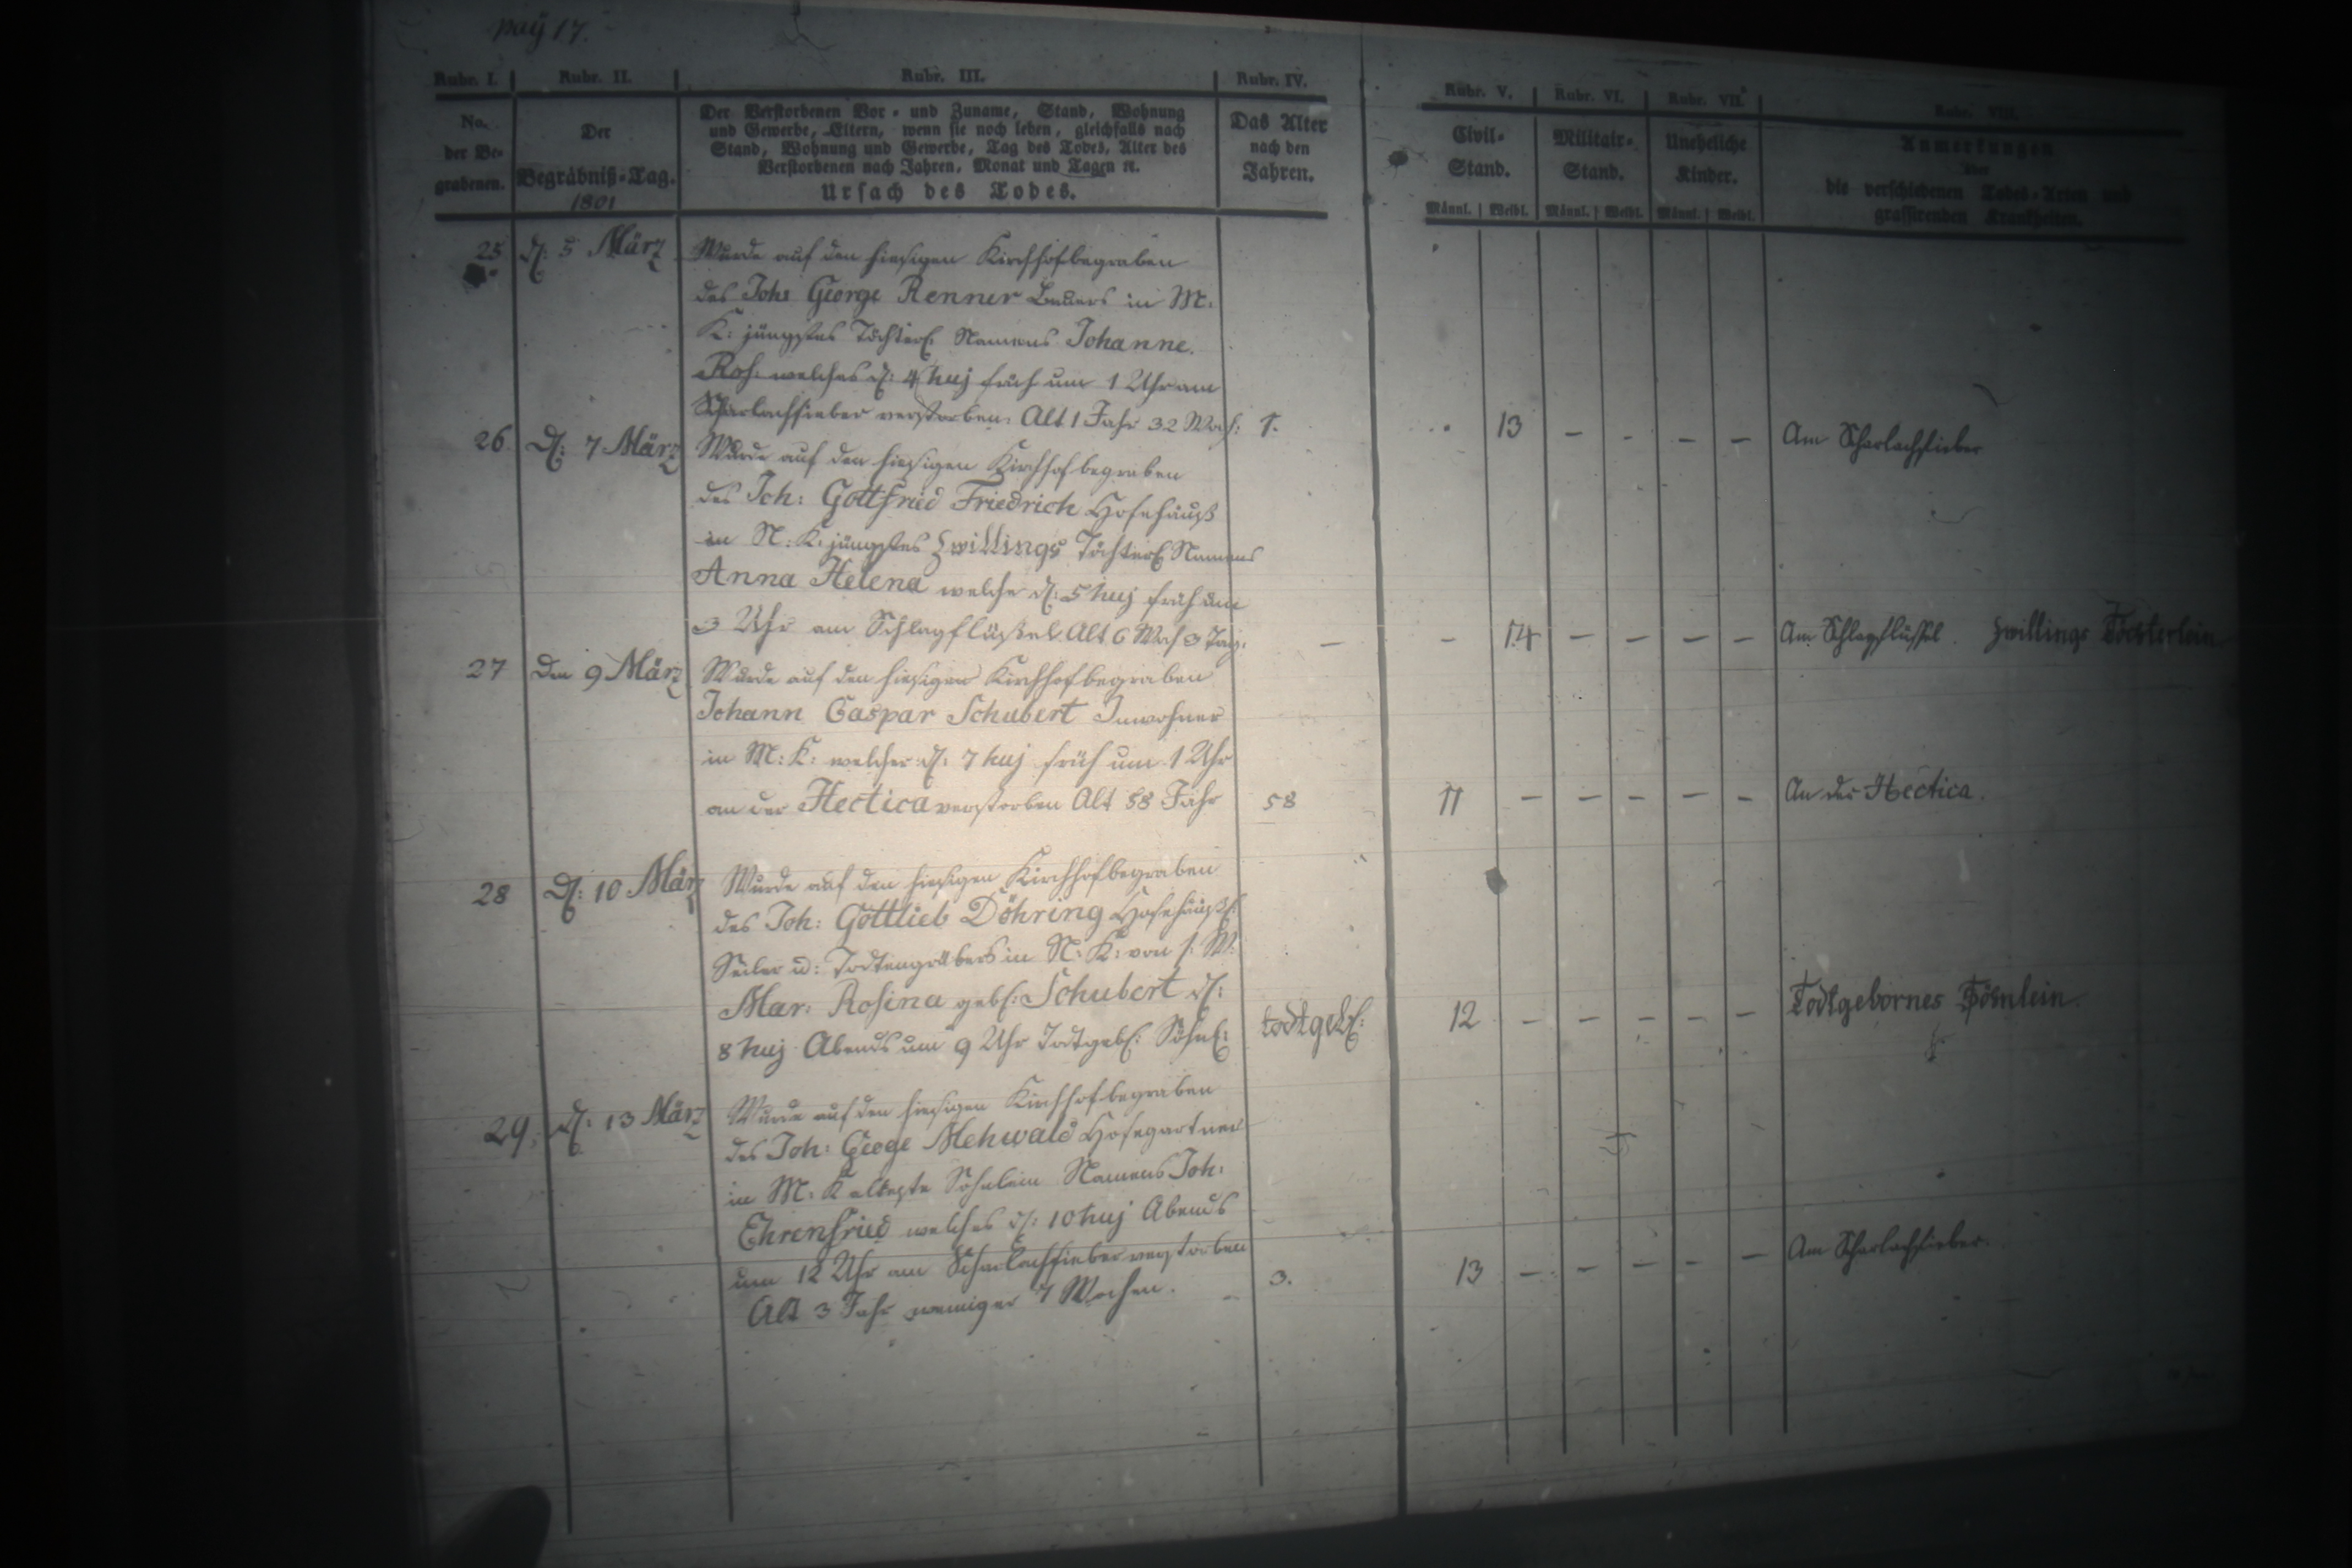 pag 17.
Rubr. I. Rubr. II. Rubr. III. Rubr. IV. Rubr. V. Rubr. VI. Rubr. VII. Rubr. VIII.
No. der Be- grabenen.
Der Begräbniß-Tag.
1801
Der Verstorbenen Vor- und Zuname, Stand, Wohnung
und Gewerbe, Eltern, wenn sie noch leben, gleichfalls nach
Stand, Wohnung und Gewerbe, Tag des Todes, Alter des
Verstorbenen nach Jahren, Monat und Tagen ꝛc.
Ursach des Todes.
Das Alter
nach den
Jahren.
Civil-
Stand.
Militair-
Stand.
Uneheliche
Kinder.
Männl. Weibl. Männl. Weibl. Männl. Weibl.
Anmerkungen
über
die verschiedenen Todes-Arten und
grassirenden Krankheiten.
25 d: 5 März Wurde auf den hiesigen Kirchhof begraben
des Joh: George Renner Bauers in M:
K: jüngstes Töchterl. Namens Johanne
Ros: welches d: 4 huj früh um 1 Uhr am
Scharlachfieber verstorben: Alt 1 Jahr 32 Woch: 1. 13 – – – – Am Scharlachfieber
26. D: 7 März Wurde auf den hiesigen Kirchhof begraben
des Joh: Gottfried Friedrich Hofehäusl
in N: K: jüngstes Zwillings Töchterl Namens
Anna Helena welche d: 5 huj früh um
3 Uhr am Schlagflüssel Alt 6 Woch 3 Tag: – – 14 – – – – Am Schlagflüssel. Zwillings Töchterlein
27 Den 9 März Wurde auf den hiesigen Kirchhof begraben
Johann Caspar Schubert Inwohner
in M: K: welcher d: 7 huj früh um 1 Uhr
an der Hectica verstorben Alt 58 Jahr 58 11 – – – – – An der Hectica.
28 D: 10 März Wurde auf den hiesigen Kirchhof begraben
des Joh: Gottlieb Döhring Hofehäusl:
Seiler u: Todtengräbers in N: K: von s: W:
Mar: Rosina geb: Schubert d:
8 huj Abends um 9 Uhr Todtgeb: Söhnl: todtgeb: 12 – – – – – Todtgebornes Söhnlein
29. D: 13 März Wurde auf den hiesigen Kirchhof begraben
des Joh: George Mehwald Hofegartner
in M: K älteste Söhnlein Namens Joh:
Ehrenfried welches d: 10 huj Abends
um 12 Uhr am Scharlachfieber verstorben
Alt 3 Jahr weniger 7 Wochen. 3. 13 – – – – – Am Scharlachfieber.